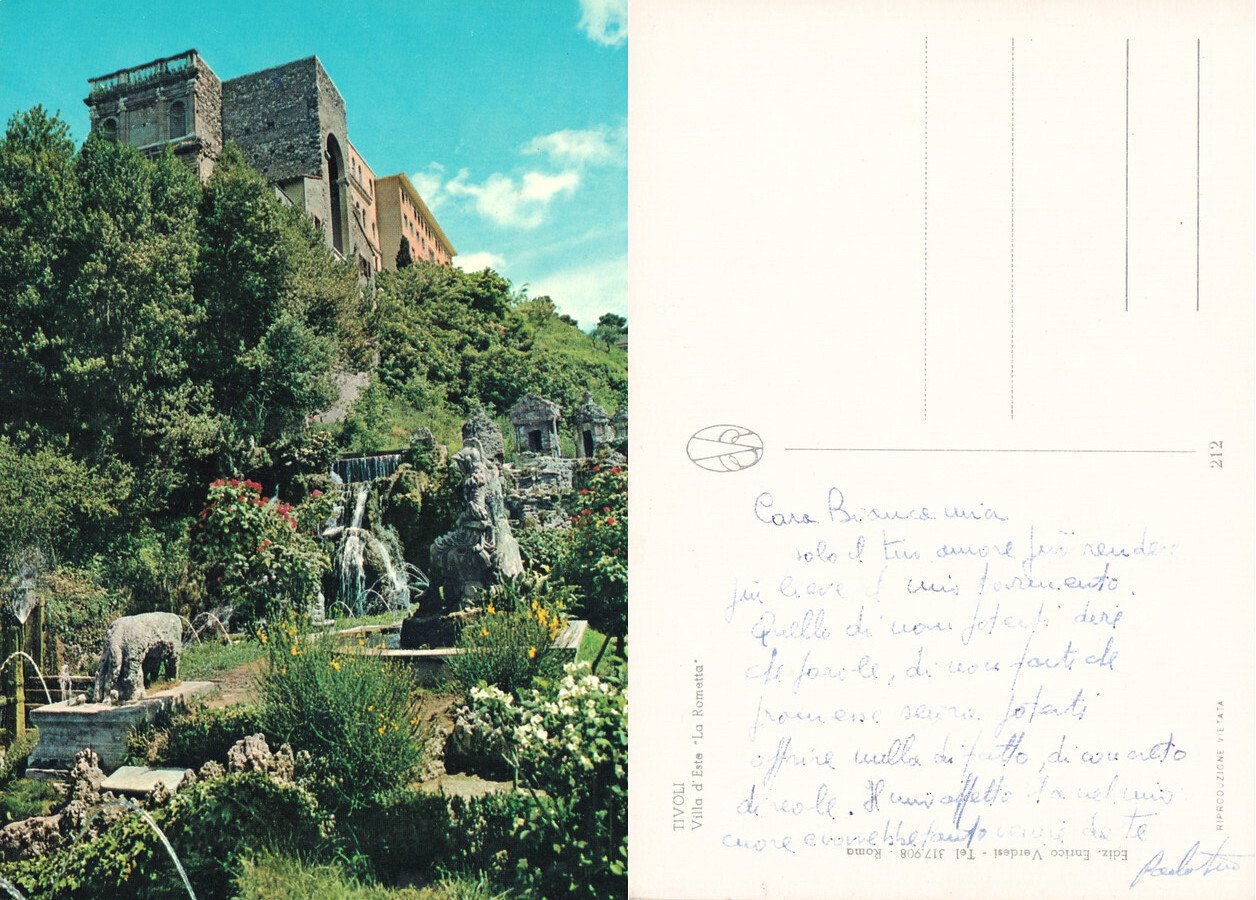 Cara Bianca mia
solo il tuo amore può rendere
più lieve il mio patimento.
Quello di non poterti dire
che parole, di non farti che
promesse senza poterti
offrire nulla di fatto, di concreto
di reale. Il mio affetto sta nel mio
cuore e vorrebbe tanto venire da te
Paolo tuo
TIVOLI
Villa d'Este "La Rometta"
212
RIPRODUZIONE VIETATA
Ediz. Enrico Verdesi - Tel 317.908 - Roma